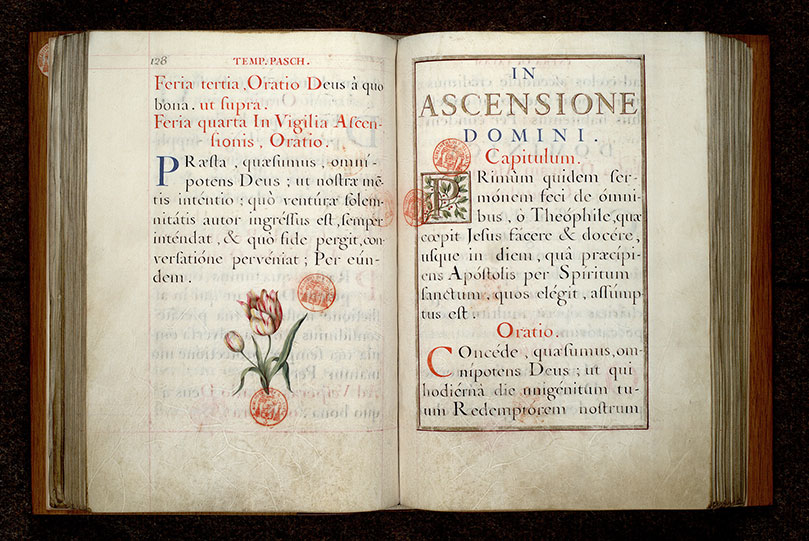 128 TEMP. PASCH.
Feria tertia, Oratio Deus à quo
bona. ut supra.
Feria quarta In Vigilia Ascen-
sionis, Oratio.
PRæsta, quæsumus, omní-
potens Deus; ut nostræ mē-
tis inténtio; quò ventúræ sólem-
nitátis autor ingréssus est, semper
inténdat, & quò fide pergit, con-
versatióne pervéniat; Per eún-
dem.
IN
ASCENSIONE
DOMINI.
Capitulum.
PRimùm quidem ser-
mónem feci de ómni-
bus, ò Theóphile, quæ
cœpit Jesus fácere & docére,
usque in diem, quâ præcípi-
ens Apóstolis per Spíritum
sanctum, quos elégit, assúmp-
tus est.
Oratio.
COncéde, quæsumus, om-
nípotens Deus; ut qui
hodiérnâ die unigénitum tu-
um Redemptórem nostrum